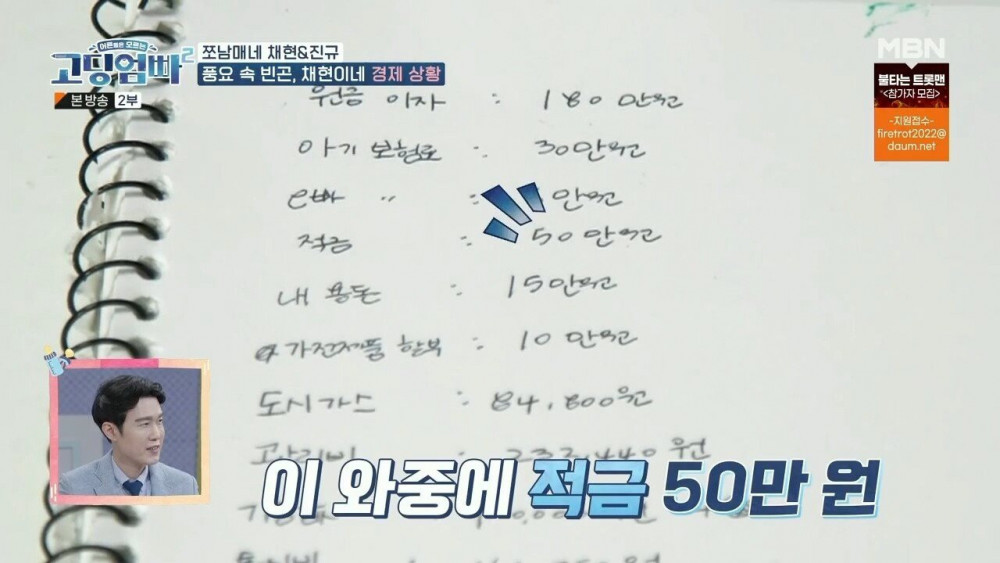 어른들은 모르는
고딩엄빠2
본 방송 2부
쪼남매네 채현&진규
풍요 속 빈곤, 채현이네 경제 상황
MBN
불타는 트롯맨
<참가자 모집>
-지원접수-
firetrot2022@
daum.net
원금 이자 : 180 만원
아기 보험료 : 30만원
만원
적금 : 50만원
내 용돈 : 15만원
가전제품 할부 : 10만원
도시가스 : 84,800원
관리비
이 와중에 적금 50만 원